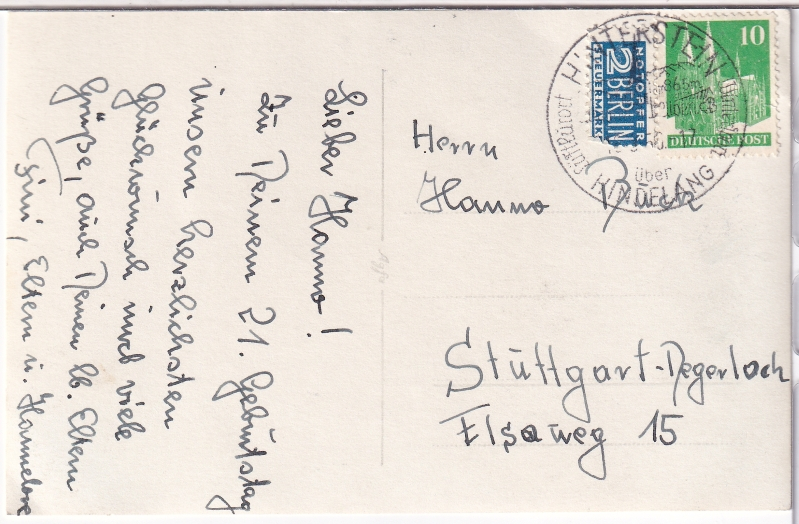 Lieber Hanno!
Zu Deinem 21. Geburtstag
unsern herzlichsten
Glückwunsch und viele
Grüße, auch Deinen lb. Eltern
Eltern u. Hannelore
Herrn
Hanno Buck
Stuttgart-Degerloch
Elsaweg 15
NOTOPFER
2 BERLIN
STEUERMARKE
10
DEUTSCHE POST
HINTERSTEIN
Luftkurort
über
HINDELANG